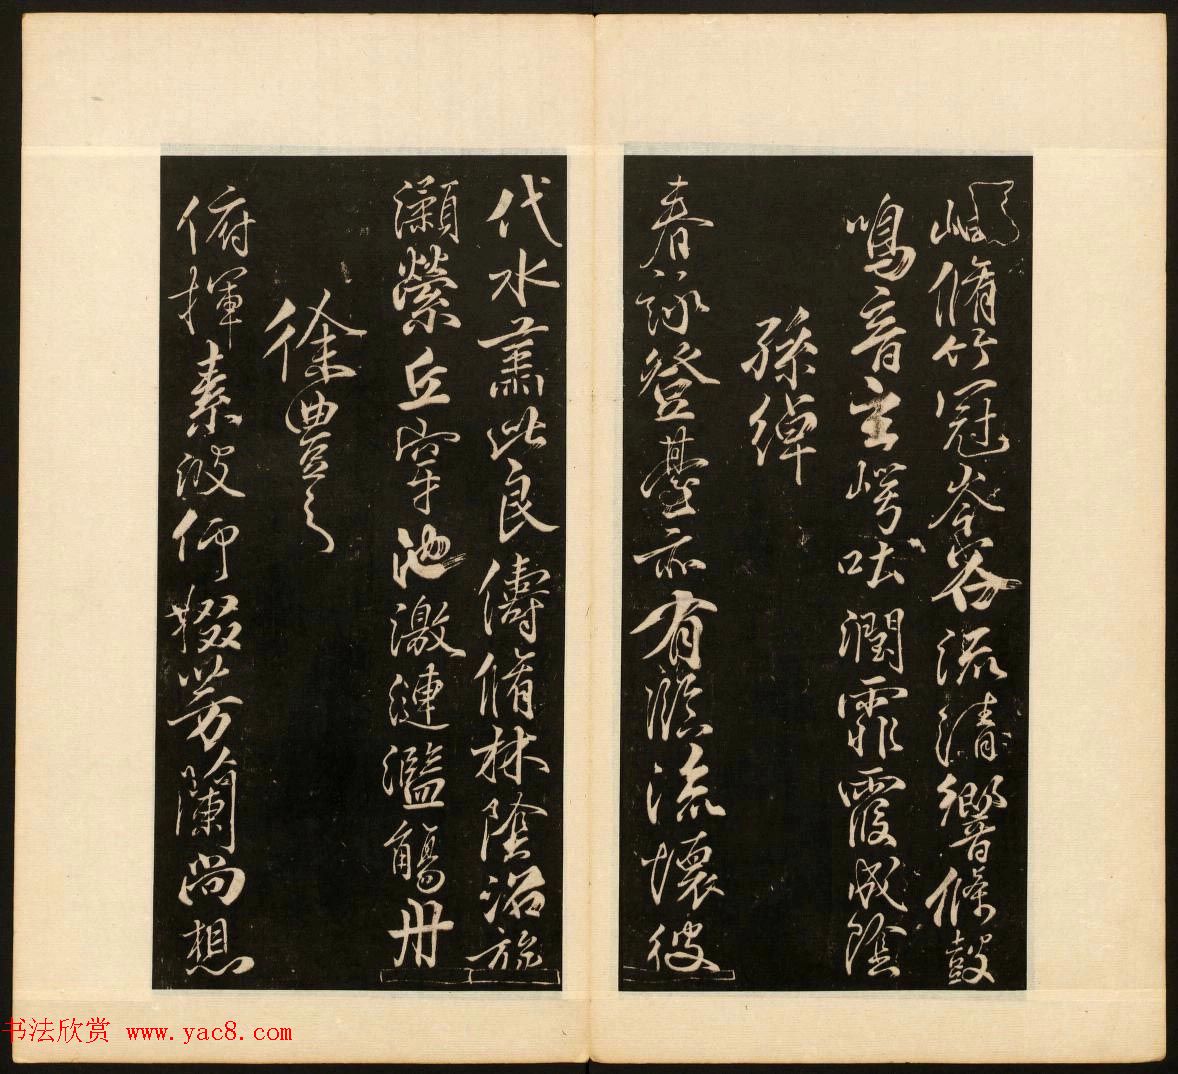 岨脩竹冠岑谷流清響條鼓
鳴音玄崿吐潤霏霞成陰
孫綽
春詠登臺亦有臨流懷彼
伐水肅此良儔脩林陰沼旋
瀬縈丘穿池激漣濫觴舟
徐豐之
俯揮素波仰掇芳蘭尚想
书法欣赏 www.yac8.com